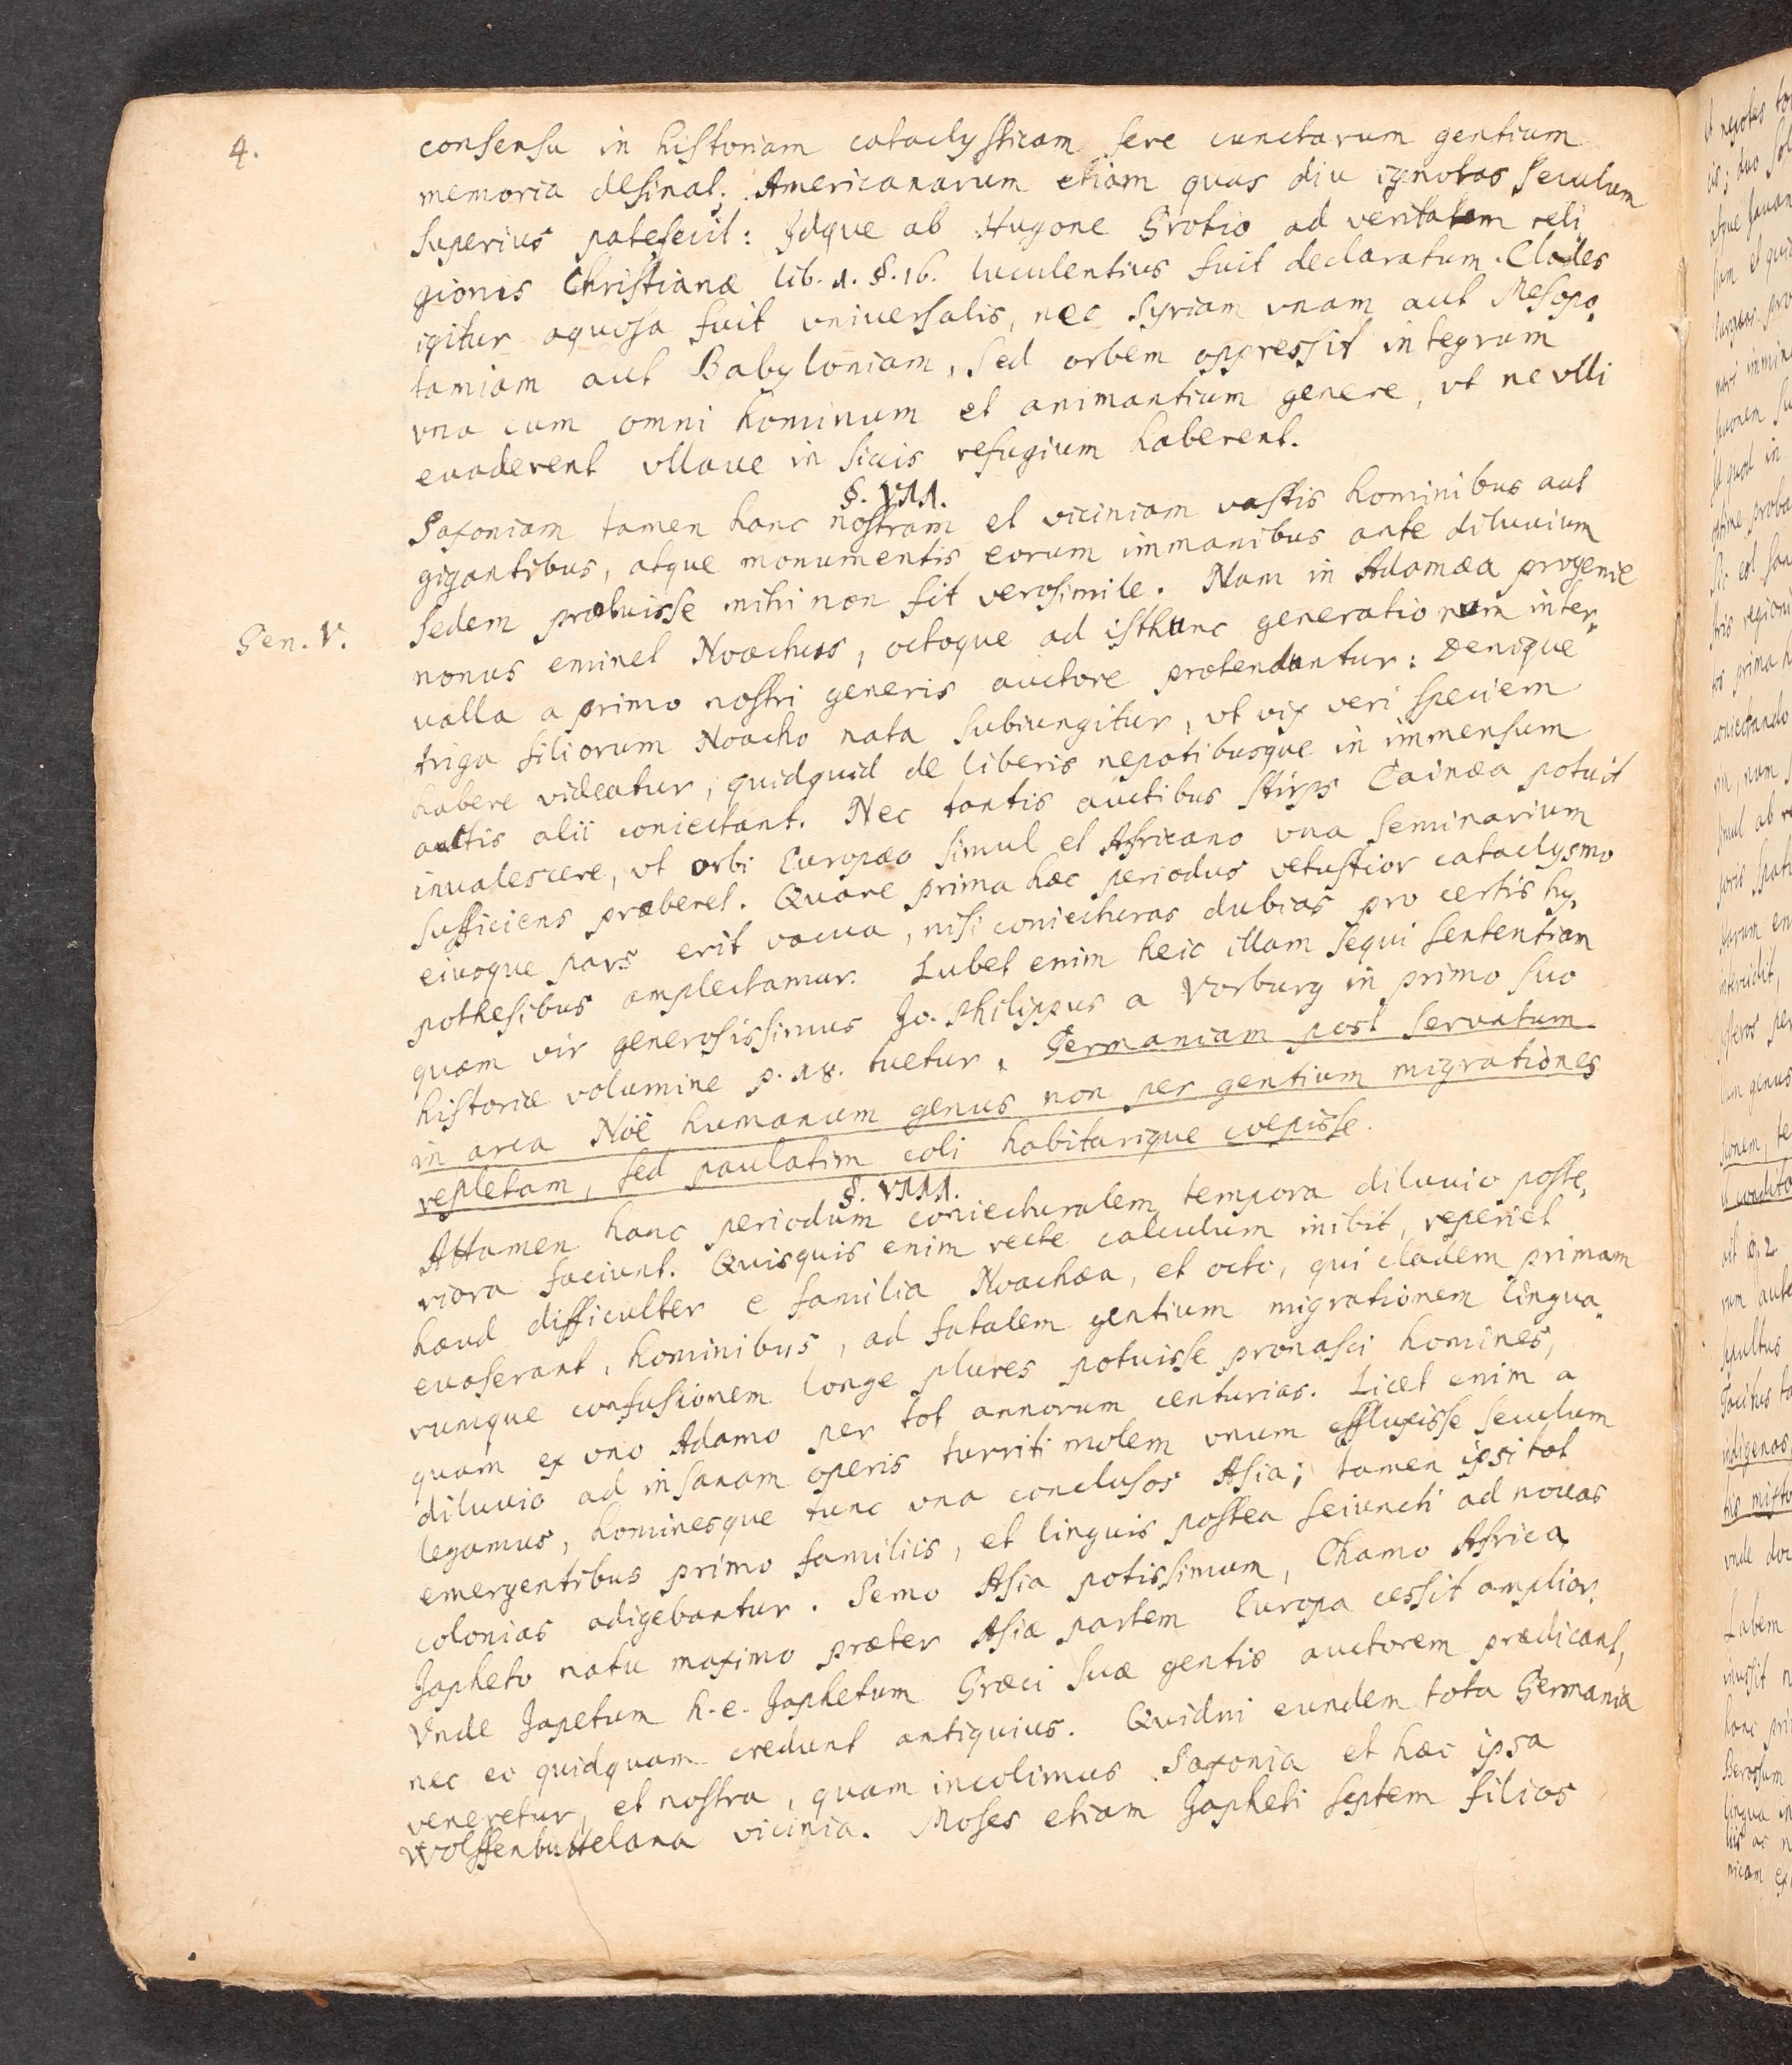 4.
consensu in historiam cataclysticam fere cunctarum gentium
memoria desinat; Americanarum etiam quas diu ignotas seculum
superius patefecit: Idque ab Hugone Grotio ad veritatem reli-
gionis Christianæ lib. 1. §. 16. luculentius fuit declaratum. Clades
igitur aquosa fuit vniuersalis, nec Syriam vnam aut Mesopo-
tamiam aut Babyloniam, sed orbem oppressit integrum
vna cum omni hominum et animantium genere, vt ne vlli
euaderent vllaue in siccis refugium haberent.
§. VII.
Saxoniam tamen hanc nostram et viciniam vastis hominibus aut
gigantibus, atque monumentis eorum immanibus ante diluuium
sedem præbuisse mihi non fit verosimile. Nam in Adamæa progenie
Gen. V.
nonus eminet Noachus, octoque ad isthanc generationum inter-
ualla a primo nostri generis auctore protenduntur: Denique
triga filiorum Noacho nata subiungitur, vt vix veri speciem
habere videatur, quidquid de liberis nepotibusque in immensum
auctis alii coniectant. Nec tantis auctibus stirps Cainæa potuit
inualescere, vt orbi Europæo simul et Africano vna seminarium
sufficiens præberet. Quare prima hæc periodus vetustior cataclysmo
eiusque pars erit vacua, nisi coniecturas dubias pro certis hy-
pothesibus amplectamur. Lubet enim heic illam sequi sententiam
quam vir generosissimus Jo. Philippus a Vorburg in primo suo
historiæ volumine p. 18. tuetur, Germaniam post seruatum
in arca Noë humanum genus non per gentium migrationes
repletam, sed paulatim coli habitarique coepisse.
§. VIII.
Attamen hanc periodum coniecturalem tempora diluuio poste-
riora faciunt. Quisquis enim recte calculum inibit, reperiet
haud difficulter e familia Noachæa, et octo, qui cladem primam
euaserant, hominibus, ad fatalem gentium migrationem lingua-
rumque confusionem longe plures potuisse pronasci homines,
quam ex vno Adamo per tot annorum centurias. Licet enim a
diluuio ad insanam operis turriti molem vnum effluxisse seculum
legamus, hominesque tunc vna conclusos Asia; tamen ipsi tot
emergentibus primo familiis, et linguis postea seiuncti ad nouas
colonias adigebantur. Semo Asia potissimum, Chamo Africa,
Japheto natu maximo præter Asiæ partem Europa cessit amplior.
Vnde Japetum h. e. Japhetum Græci suæ gentis auctorem prædicant,
nec eo quidquam credunt antiquius. Quidni eundem tota Germania
veneretur, et nostra, quam incolimus Saxonia et hæc ipsa
Wolffenbuttelana vicinia. Moses etiam Japheti septem filios